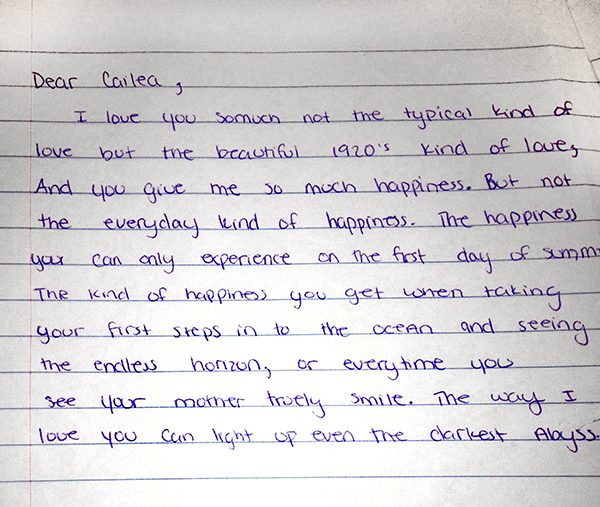 Dear Cailea,
I love you somuch not the typical kind of
love but the beautiful 1920's kind of love,
And you give me so much happiness. But not
the everyday kind of happiness. The happiness
your can only experience on the first day of summ
The kind of happiness you get when taking
your first steps in to the ocean and seeing
the endless horizon, or everytime you
see your mother truely smile. The way I
love you can light up even the darkest Abyss.